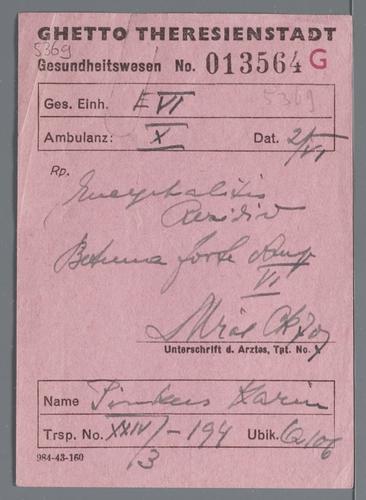 GHETTO THERESIENSTADT
5369
Gesundheitswesen No. 013564 G
Ges. Einh. E VI 5369
Ambulanz: X Dat. 2/VI
Rp.
Encephalitis
Residiv
forte Amp
VI
Unterschrift d. Arztes, Tgt. No.
Name Karin
Trsp. No. XXIV/3 - 194 Ubik. Q 106
984-43-160